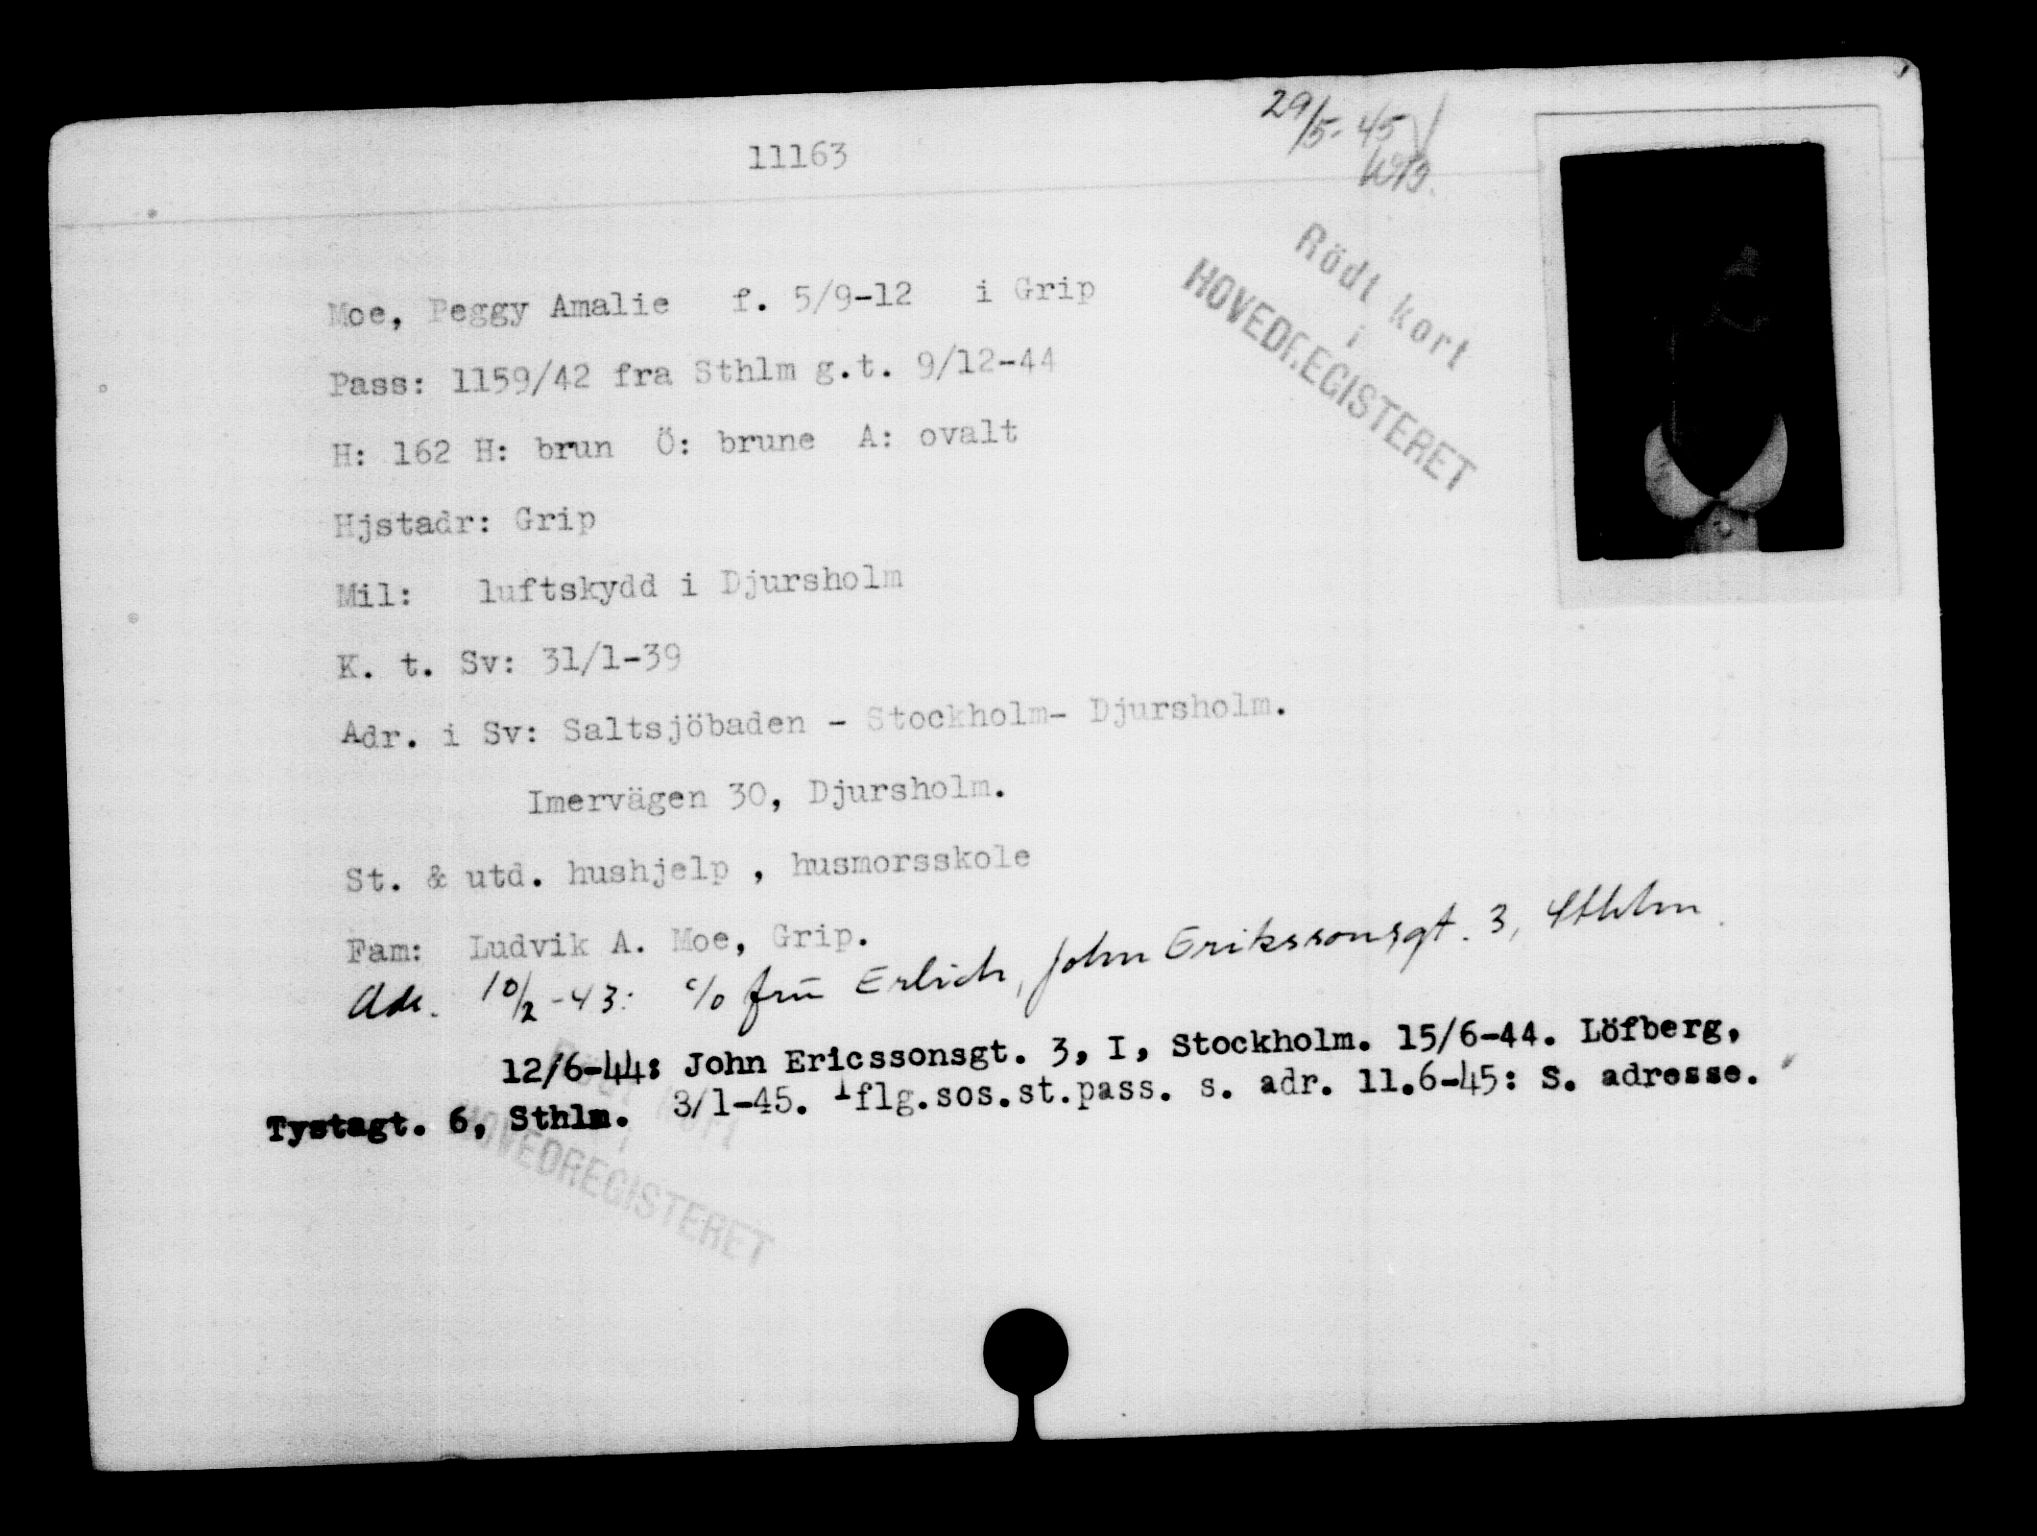 11163
29/5-45
Rödt kort
i
HOVEDREGISTERET
Moe, Peggy Amalie f. 5/9-12 i Grip
Pass: 1159/42 fra Sthlm g.t. 9/12-44
H: 162 H: brun Ö: brune A: ovalt
Hjstadr: Grip
Mil: luftskydd i Djursholm
K. t. Sv: 31/1-39
Adr. i Sv: Saltsjöbaden - Stockholm- Djursholm.
Imervägen 30, Djursholm.
St. & utd. hushjelp , husmorsskole
Fam: Ludvik A. Moe, Grip.
Adr. 10/2-43: c/o frū Erlich, John Erikssonsgt. 3, Sthlm.
12/6-44: John Ericssonsgt. 3, I, Stockholm. 15/6-44. Löfberg,
Tystagt. 6, Sthlm. 3/1-45. Iflg.sos.st.pass. s. adr. 11.6-45: S. adresse.
Rödt kort
i
HOVEDREGISTERET